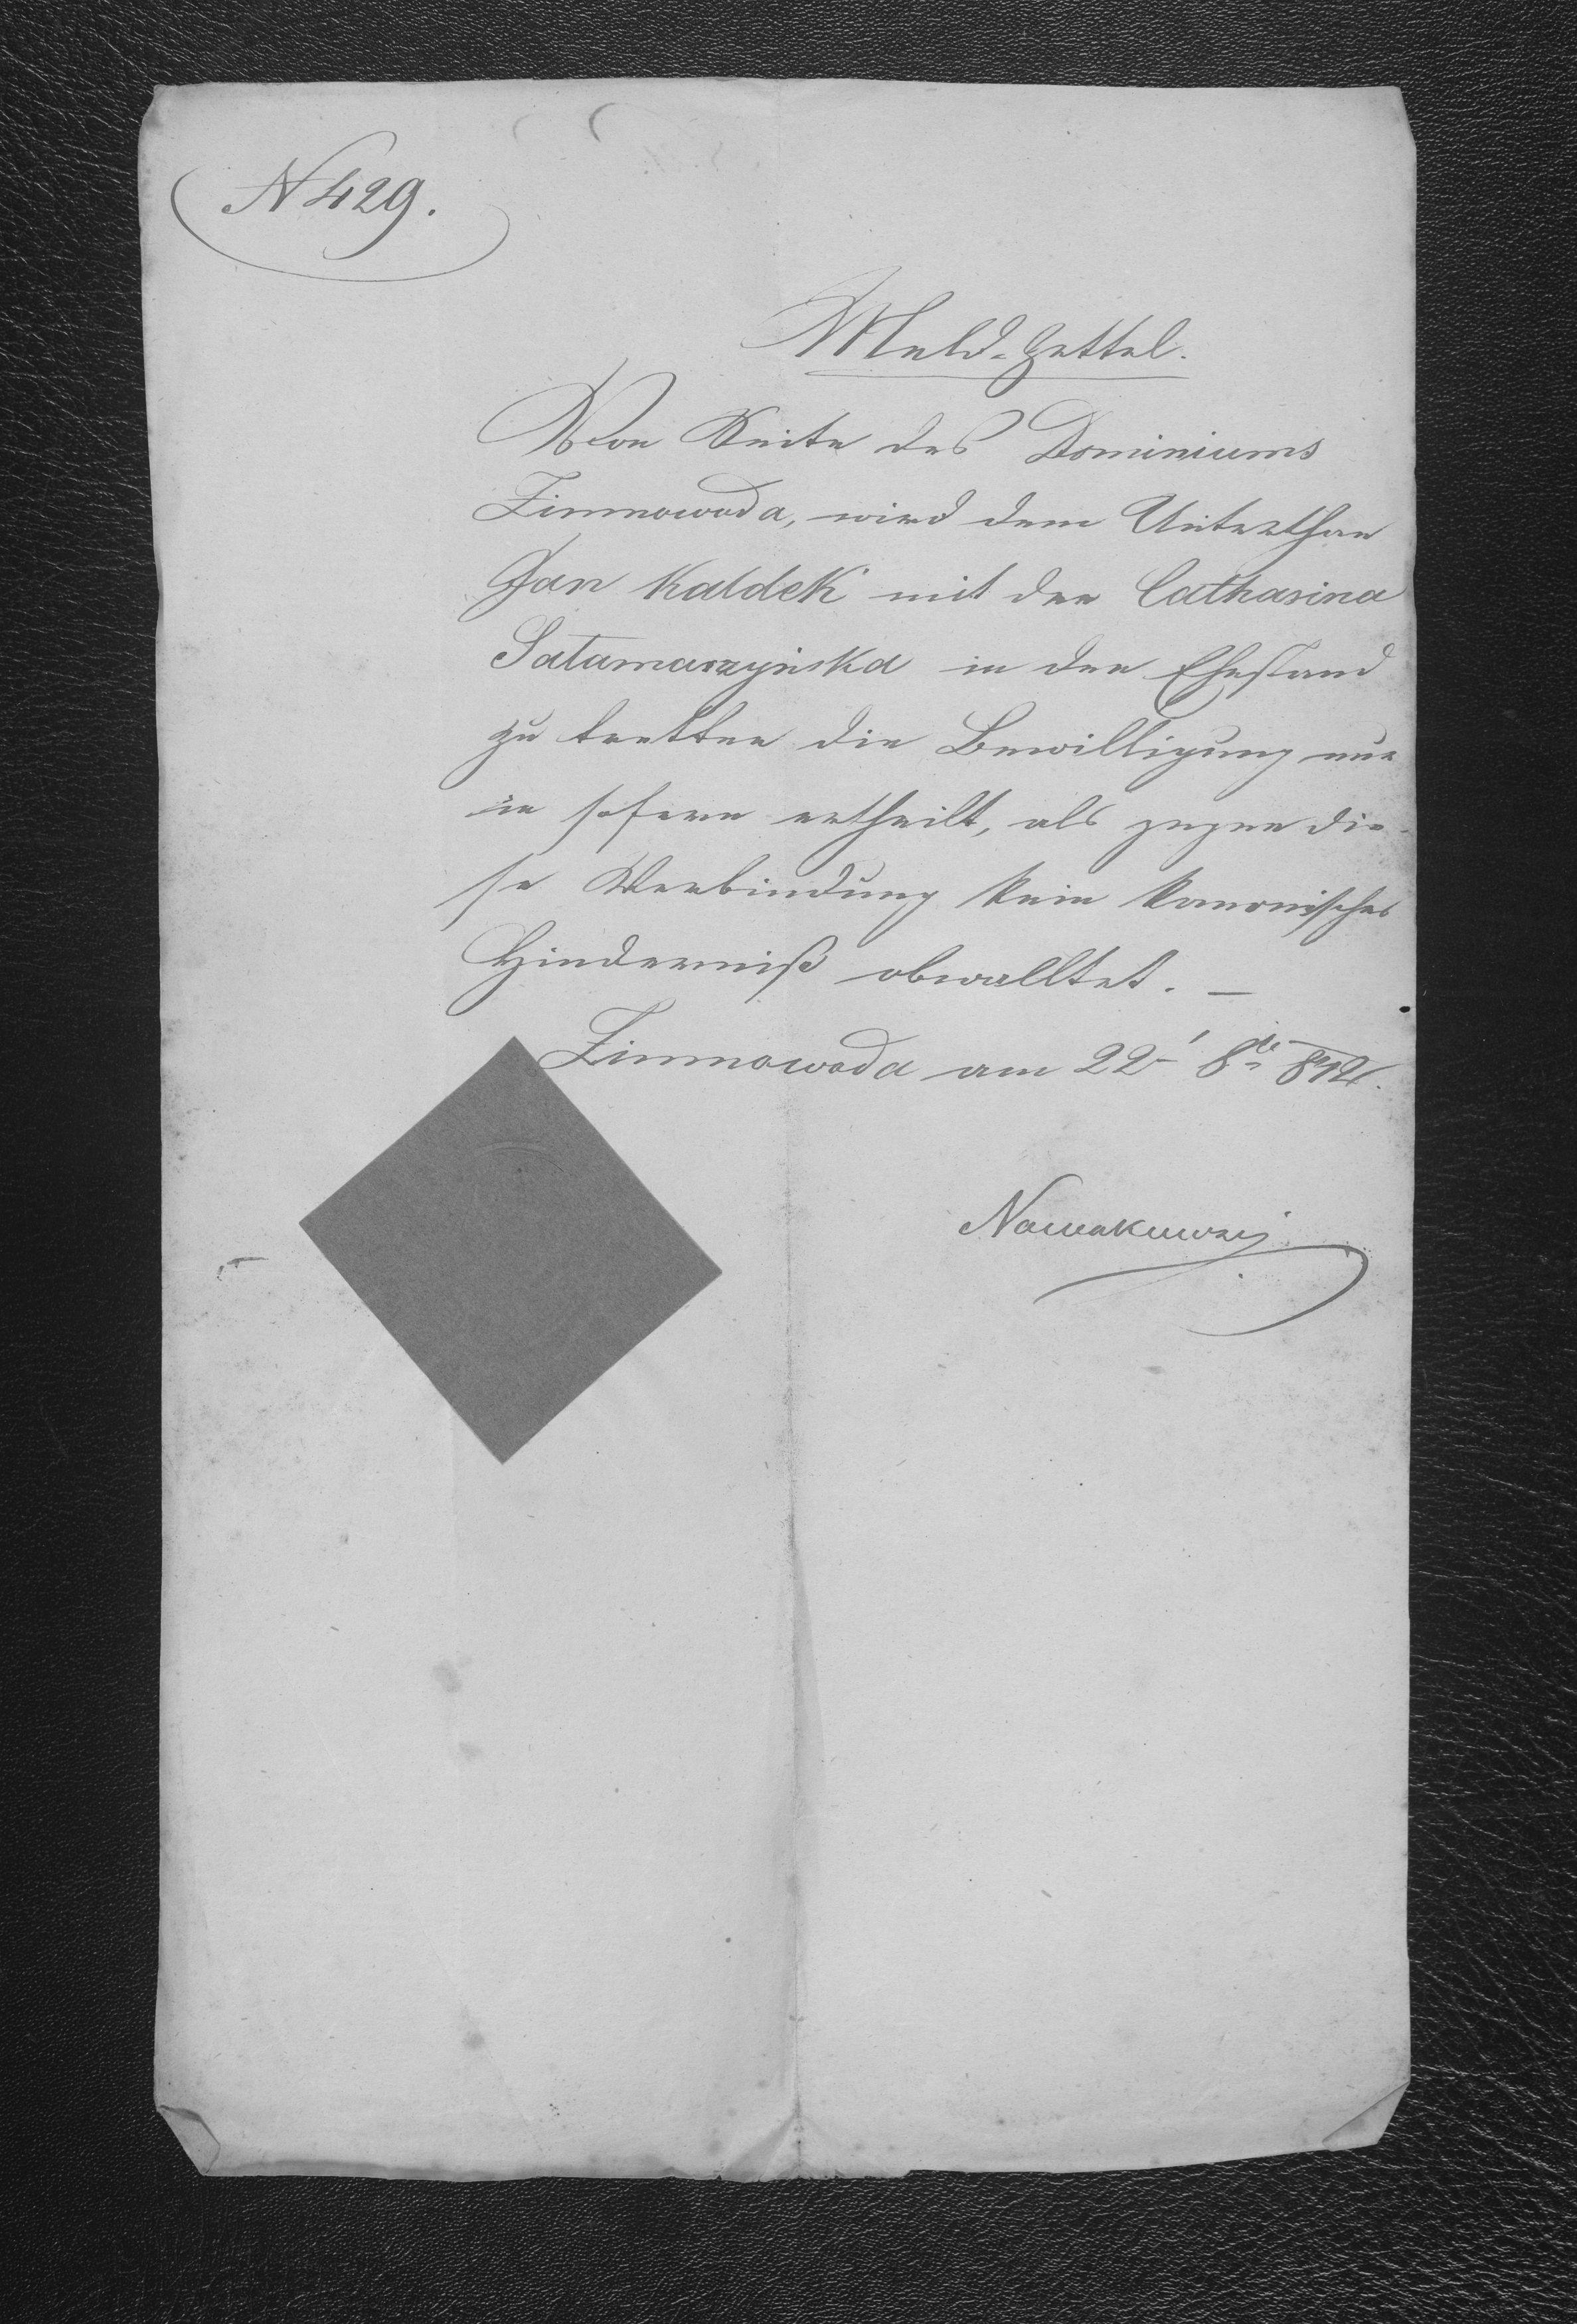 N 429.
Meld-Zettel.
Von Seite des Dominiums
Zimnowoda, wird dem Unterthan
Jan Kaldek mit der Catharina
Satamaszyńska in den Ehestand
zu tretten die Bewilligung nur
in sofern ertheilt, als gegen die-
se Verbindung kein kanonisches
Hinderniß obwalltet. —
Zimnowoda am 22 8